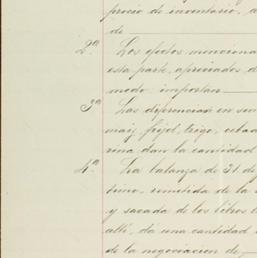 precio de inventario, a
de
2ª Los efectos menciona
esta parte, apreciados d
modo, importan
3ª Las diferencias en son
maiz, frijol, trigo, cebad
rina dan la cantidad
4ª La balanza de 31 de
timo, remitida de la
y sacada de los libros
alli, dá una cantidad
de la negociacion de